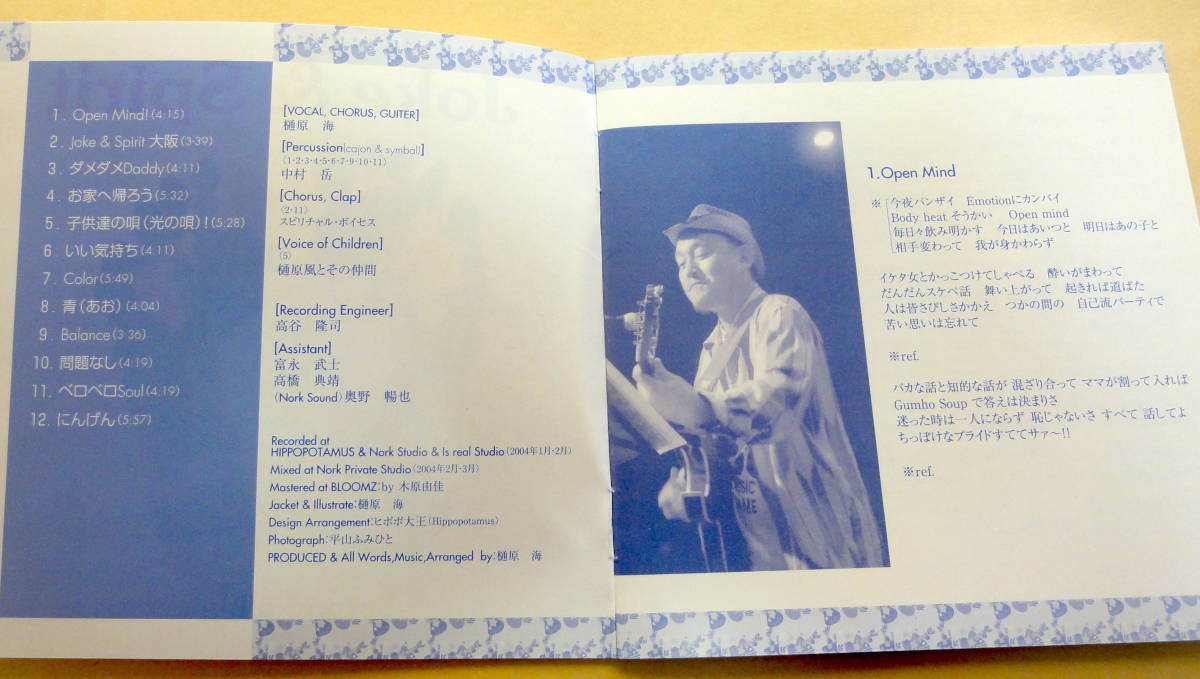 1. Open Mind!(4:15)
2. Joke & Spirit 大阪(3:39)
3. ダメダメDaddy(4:11)
4. お家へ帰ろう(5:32)
5. 子供達の唄(光の唄)!(5:28)
6 いい気持ち(4:11)
7. Color(5:49)
8. 青(あお)(4:04)
9. Balance(3:36)
10. 問題なし(4:19)
11. ベロベロSoul(4:19)
12. にんげん(5:57)
[VOCAL, CHORUS, GUITER]
樋原 海
[Percussion(cajon & symbal)]
(1・2・3・4・5・6・7・9・10・11)
中村 岳
[Chorus, Clap]
(2・11)
スピリチャル・ボイセス
[Voice of Children]
(5)
樋原風とその仲間
[Recording Engineer]
高谷 隆司
[Assistant]
富永 武士
高橋 典靖
(Nork Sound)奥野 暢也
Recorded at
HIPPOPOTAMUS & Nork Studio & Is real Studio(2004年1月・2月)
Mixed at Nork Private Studio(2004年2月・3月)
Mastered at BLOOMZ:by 木原由佳
Jacket & Illustrate:樋原 海
Design Arrangement:ヒポポ大王(Hippopotamus)
Photograph:平山ふみひと
PRODUCED & All Words,Music,Arranged by:樋原 海
1.Open Mind
※ 今夜バンザイ Emotionにカンパイ
Body heat そうかい Open mind
毎日々飲み明かす 今日はあいつと 明日はあの子と
相手変わって 我が身かわらず
イケタ女とかっこつけてしゃべる 酔いがまわって
だんだんスケベ話 舞い上がって 起きれば道ばた
人は皆さびしさかかえ つかの間の 自己流パーティで
苦い思いは忘れて
※ref.
バカな話と知的な話が 混ざり合って ママが割って入れば
Gumho Soup で答えは決まりさ
迷った時は一人にならず 恥じゃないさ すべて 話してよ
ちっぽけなプライドすててサァ〜!!
※ref.